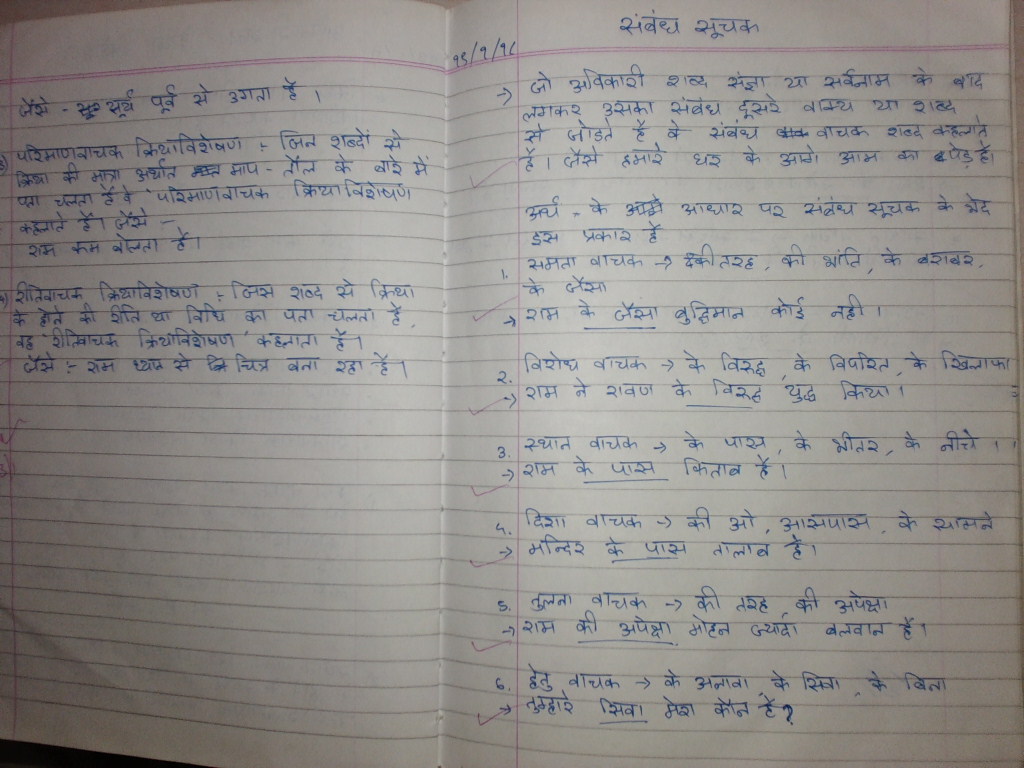 जैसे - सूर्य पूर्व से उगता है ।
परिमाणवाचक क्रियाविशेषण :- जिन शब्दों से
क्रिया की मात्रा अर्थात माप - तौल के बारे में
पता चलता है वे परिमाणवाचक क्रियाविशेषण
कहलाते हैं। जैसे -
राम कम बोलता है।
रीतिवाचक क्रियाविशेषण :- जिस शब्द से क्रिया
के होने की रीति या विधि का पता चलता है,
वह 'रीतिवाचक क्रियाविशेषण' कहलाता है।
जैसे :- राम ध्यान से चित्र बना रहा है।
संबंध सूचक
→ जो अविकारी शब्द संज्ञा या सर्वनाम के बाद
लगाकर उसका संबंध दूसरे वाक्य या शब्द
से जोड़ते हैं वे संबंध वाचक शब्द कहलाते
हैं। जैसे हमारे घर के आगे आम का पेड़ है।
अर्थ - के आधार पर संबंध सूचक के भेद
इस प्रकार हैं
1. समता वाचक → की तरह, की भांति, के बराबर,
के जैसा
→ राम के जैसा बुद्धिमान कोई नही ।
2. विरोध वाचक → के विरुद्ध, के विपरित, के खिलाफ
→ राम ने रावण के विरुद्ध युद्ध किया।
3. स्थान वाचक → के पास, के भीतर, के नीचे ।
→ राम के पास किताब है।
4. दिशा वाचक → की ओ, आसपास, के सामने
→ मन्दिर के पास तालाब है।
5. तुलना वाचक → की तरह, की अपेक्षा
→ राम की अपेक्षा मोहन ज्यादा बलवान है।
6. हेतु वाचक → के अलावा, के सिवा, के बिना
→ तुम्हारे सिवा मेरा कौन है?